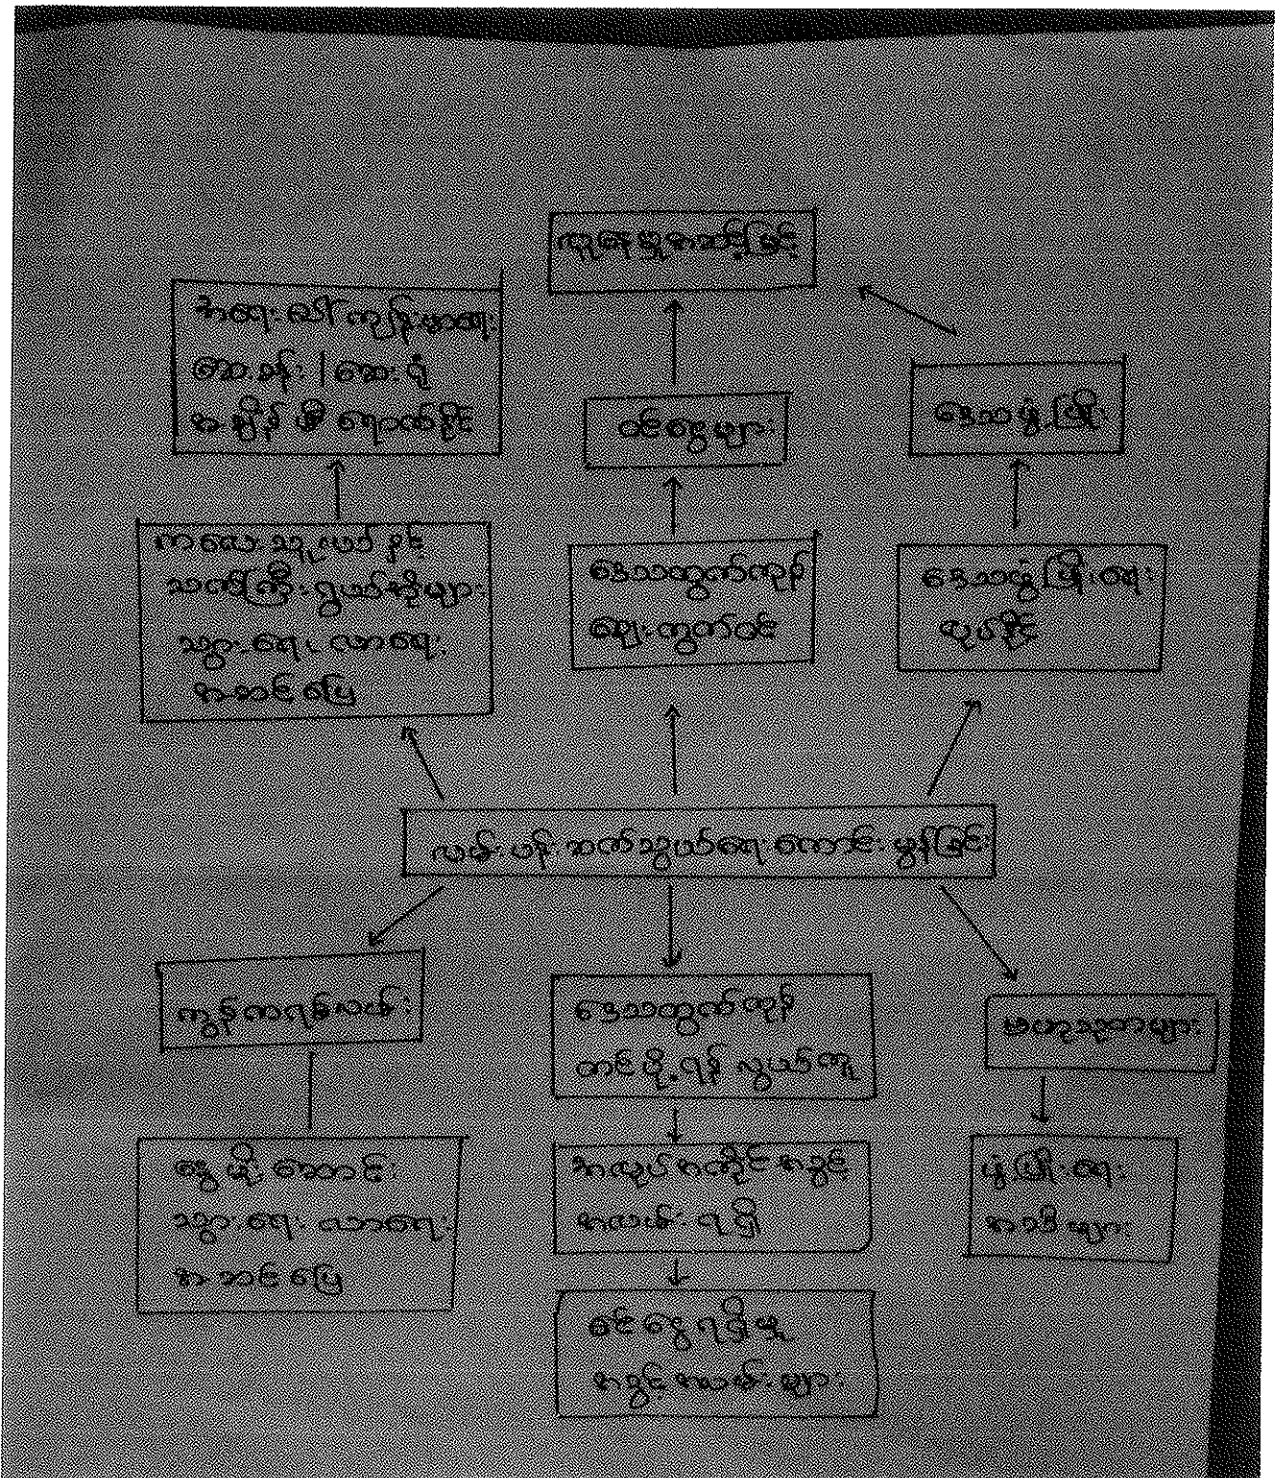 လူနေမှုအဆင့်မြင့်
အရေးပေါ်ကျန်းမာရေး
ဆေးခန်း / ဆေးရုံ
အချိန်မီ ရောက်နိုင်
ဝင်ငွေများ
ဒေသဖွံ့ဖြိုး
ကလေးသူငယ်နှင့်
သက်ကြီးရွယ်အိုများ
သွားရေး လာရေး
အဆင်ပြေ
ဒေသထွက်ကုန်
ဈေးကွက်ဝင်
ဒေသဖွံ့ဖြိုးရေး
လုပ်နိုင်
လမ်းပန်းဆက်သွယ်ရေ ကောင်းမွန်ခြင်း
ကွန်ကရစ်လမ်း
ဒေသထွက်ကုန်
တင်ပို့ရန် လွယ်ကူ
ဗဟုသုတများ
နွေ မိုး ဆောင်း
သွားရေး လာရေး
အဆင်ပြေ
အလုပ်အကိုင်အခွင့်
အလမ်း ရရှိ
ဖွံ့ဖြိုးရေး
အသိများ
ဝင်ငွေရရှိမှု
အခွင့်အလမ်းများ